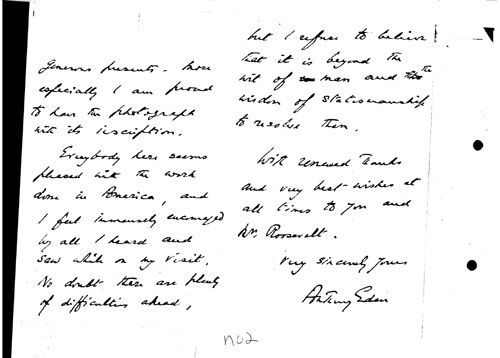 generous presents. More
especially I am proud
to have the photograph
with its inscription.
Everybody here seems
pleased with the work
done in America, and
I feel immensely encouraged
by all I heard and
saw while on my visit.
No doubt there are plenty
of difficulties ahead,
but I refuse to believe
that it is beyond the
wit of man and the
wisdom of statesmanship
to resolve them.
With renewed thanks
and very best wishes at
all times to you and
Mr. Roosevelt.
Very sincerely yours
Anthony Eden
no2